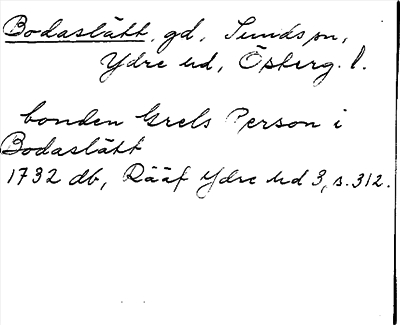 Bodaslätt, gd, Sunds sn,
Ydre hd, Österg. l.
bonden Grels Person i
Bodaslätt
1732 db, Rääf Ydre hd 3, s. 312.